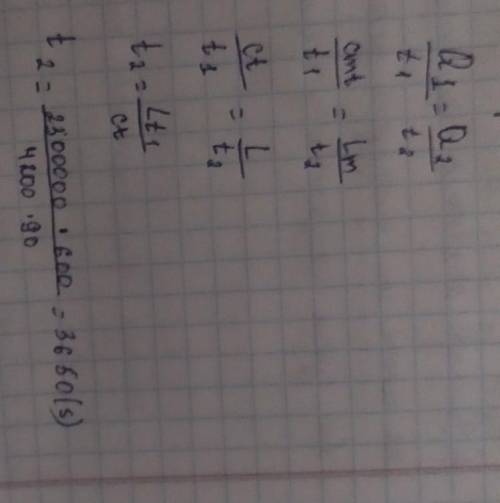 Q1/t1 = Q2/t2
cmt/t1 = Lm/t2
ct/t1 = L/t2
t2 = Lt1/ct
t2 = 2300000 · 600/4200 · 90 = 3650(s)